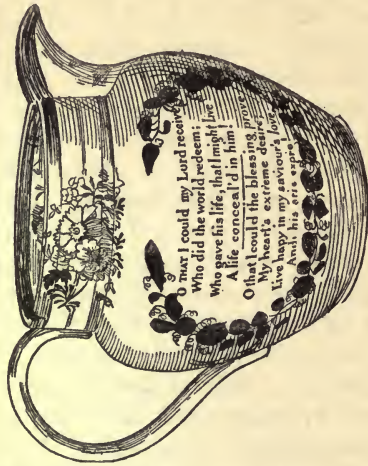 O THAT I could my Lord receive,
Who did the world redeem;
Who gave his life, that I might live
A life conceal'd in him!
O that I could the blessing prove,
My heart's extreme desire,
Live happy in my saviour's love,
And in his arms expire!